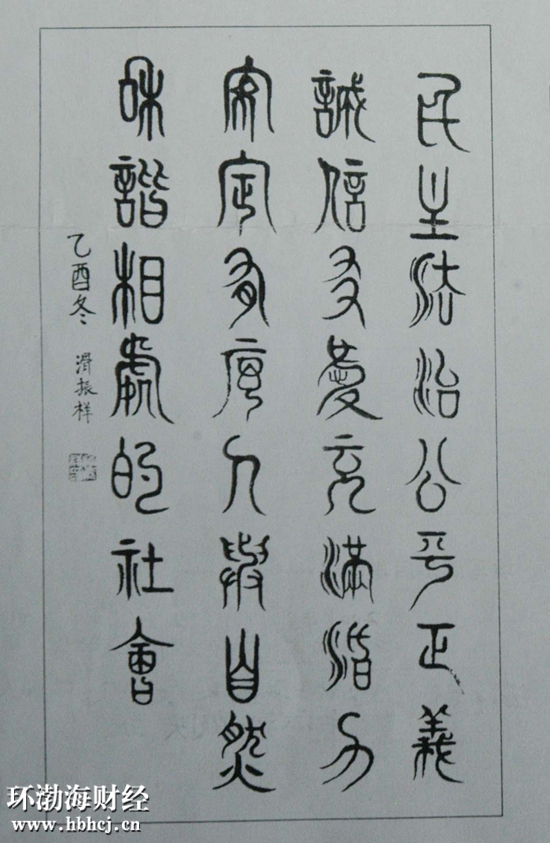 民主法治公平正義
誠信友愛充滿活力
安定有序人與自然
和諧相處的社會
乙酉冬 滑振样
环渤海财经
www.hbhcj.cn